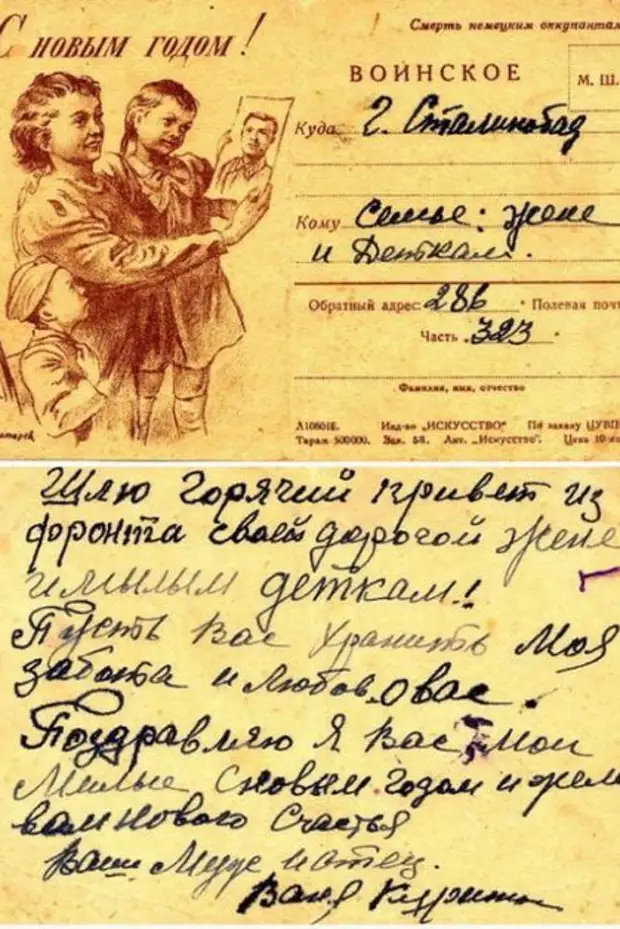 С НОВЫМ ГОДОМ!
Смерть немецким оккупантам
ВОИНСКОЕ
М. Ш.
Куда г. Сталинобад
Кому Семье: жене
и Деткам.
Обратный адрес: 286 Полевая почт
Часть 323
Фамилия, имя, отчество
Изд-во „ИСКУССТВО“ По заказу ЦУВП
Тираж 500000. Зак. 58. Лит. „Искусство“. Цена 10
Шлю горячий привет из
фронта своей дорогой жене
и милым деткам!
Пусть Вас хранить Моя
забота и любов о вас.
Поздравляю я Вас Мои
Милые с новым годом и жела
вам нового счастья
Ваш Муж и отец.
Ваня